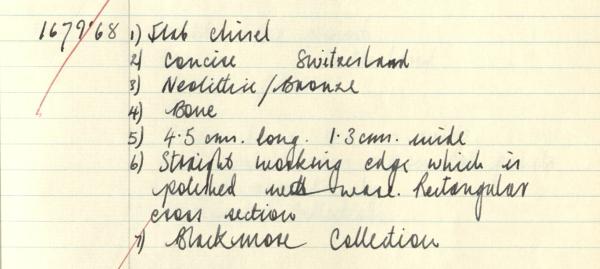 1679'68 1) Stab chisel
2) Concise Switzerland
3) Neolithic/Bronze
4) Bone
5) 4.5 cms. long. 1.3 cms. wide
6) Straight working edge which is
polished with wear. Rectangular
cross section
7) Blackmore Collection